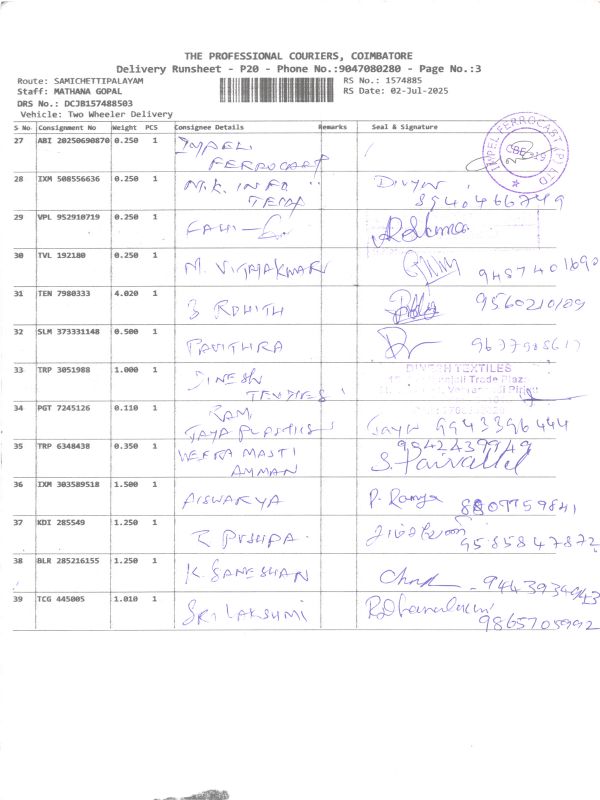 THE PROFESSIONAL COURIERS, COIMBATORE
Delivery Runsheet - P20 - Phone No.:9047080280 - Page No.:3
Route: SAMICHETTIPALAYAM RS No.: 1574885
Staff: MATHANA GOPAL RS Date: 02-Jul-2025
DRS No.: DCJB157488503
Vehicle: Two Wheeler Delivery
S No Consignment No Weight PCS Consignee Details Remarks Seal & Signature
27 ABI 20250690870 0.250 1
FERROCAST
28 IXM 508556636 0.250 1 M.K. INFO DIVYA
TECH 8940466749
29 VPL 952910719 0.250 1
30 TVL 192180 0.250 1 M. VIJAYAKUMAR
31 TEN 7980333 4.020 1 ROHITH 9560210189
32 SLM 373331148 0.500 1 PAVITHRA
33 TRP 3051988 1.000 1 DINESH DIVESH TEXTILES
TEXTILES Trade Plaz
34 PGT 7245126 0.110 1 RAM
JAYA PLASTICS Jaya 9943396444
35 TRP 6348438 0.350 1 VEERA MASTI 9942439949
AMMAN
36 IXM 303589518 1.500 1 AISWARYA P. Ramya 8807759841
37 KDI 285549 1.250 1 R PUSHPA 9585847872
38 BLR 285216155 1.250 1 K. GANESHAN
39 TCG 445005 1.010 1 SRI LAKSHMI R.Dhanalaxmi
9865705992